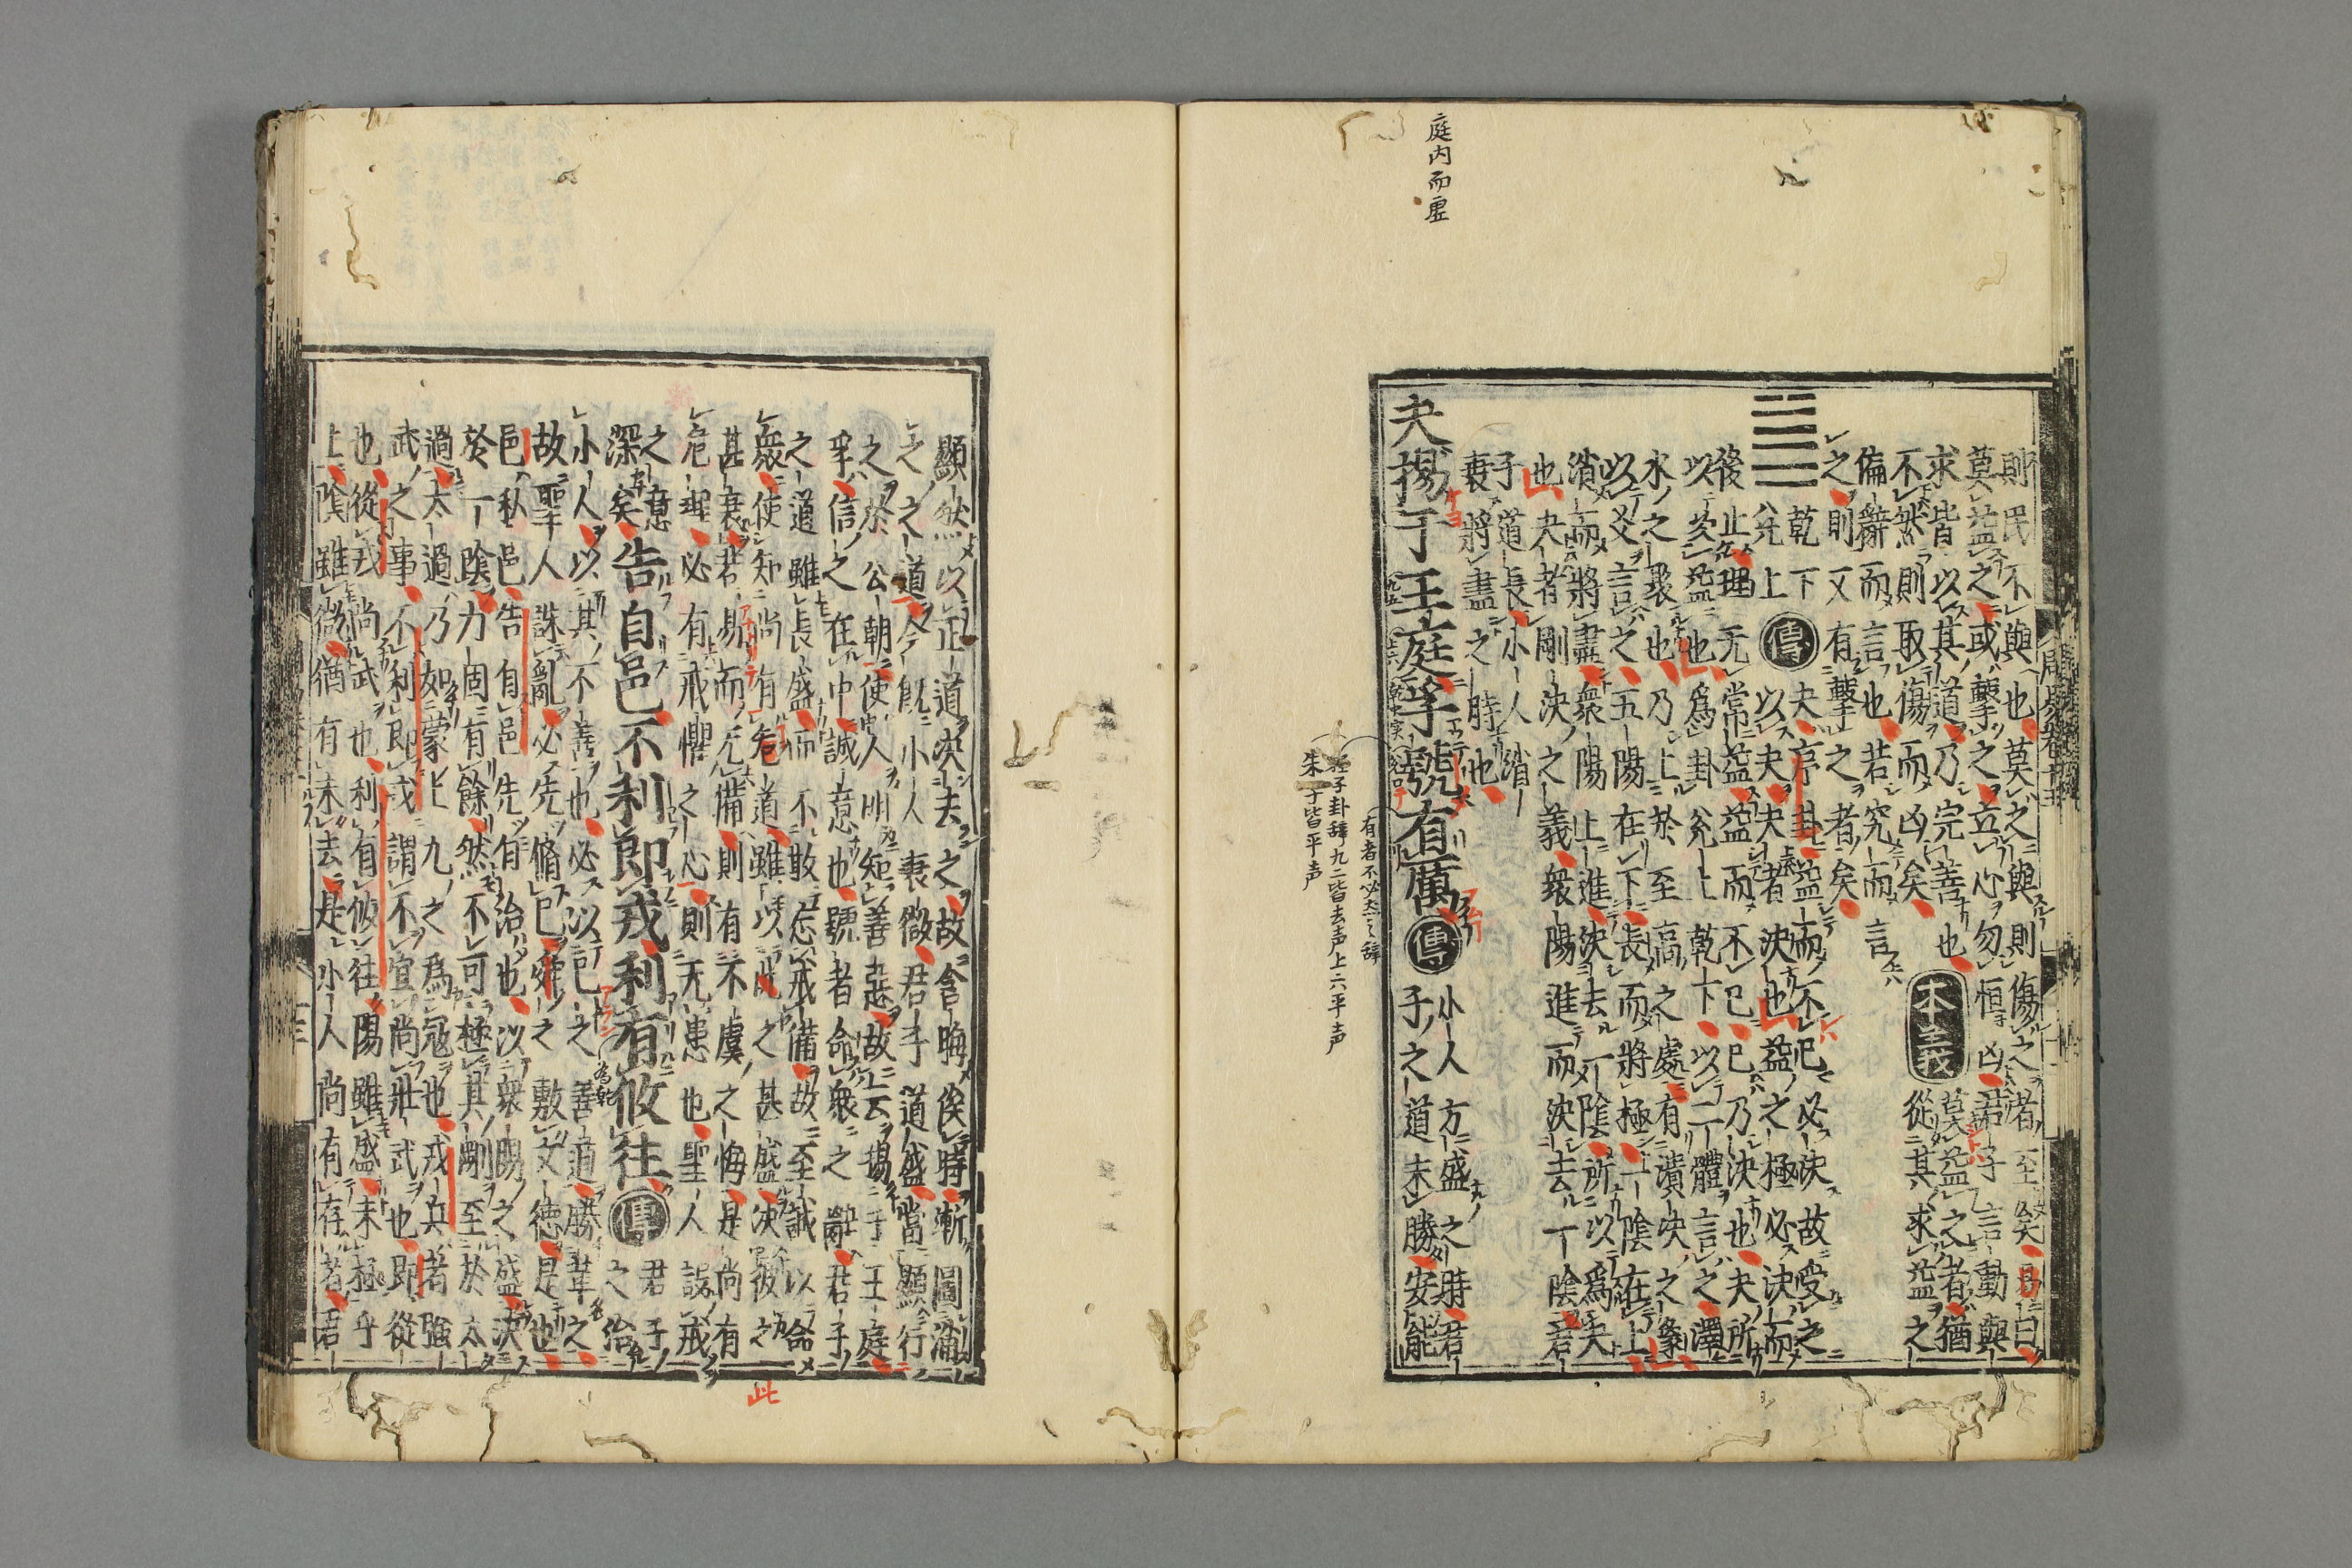 庭内而虚
則民不與也莫之與則傷之者至矣易曰
莫益之或擊之立心勿恒凶
莫益之者猶
求皆以其道乃完善也
本義
從其求益之
不然則取傷而凶矣
偏辭而言也若究而言
之則又有擊之者矣
乾下
兌上
傳
夬序卦益而不已必決故受之
以夬夬者決也益之極必決而
後止理无常益益而不已已乃決也夬所
以次益也爲卦兌上乾下以二體言之澤
水之聚也乃上於至高之處有潰決之象
以爻言之五陽在下長而將極一陰在上
消而將盡衆陽上進決去一陰所以爲夬
也夬者剛決之義衆陽進而決去一陰君
子道長小人消
衰將盡之時也
夬揚于王庭孚號有厲
傳
小人方盛之時君
子之道未勝安能
有者不必然之辞
程子卦辞九二皆去声上六平声
朱子皆平声
顯然以正道決去之故含晦俟時漸圖消
之之道今既小人衰微君子道盛當顯行
之於公朝使人明知善惡故云揚于王庭
孚信之在中誠意也號者命衆之辭君子
之道雖長盛而不敢忘戒備故至誠以命
衆使知尚有危道雖以此之甚盛決彼之
甚衰若易而无備則有不虞之悔是尚有
危理必有戒懼之心則无患也聖人設戒
之意
深矣
告自邑不利即戎利有攸往
傳
君子
之治
小人以其不善也必以己之善道勝革之
故聖人誅亂必先脩己舜之敷文德是也
邑私邑告自邑先自治也以衆陽之盛決
於一陰力固有餘然不可極其剛至於太
過太過乃如蒙上九之爲寇也戎兵者強
武之事不利即戎謂不宜尚壯武也即從
也從戎尚武也利有攸往陽雖盛未極乎
上陰雖微猶有未去是小人尚有存者君
此